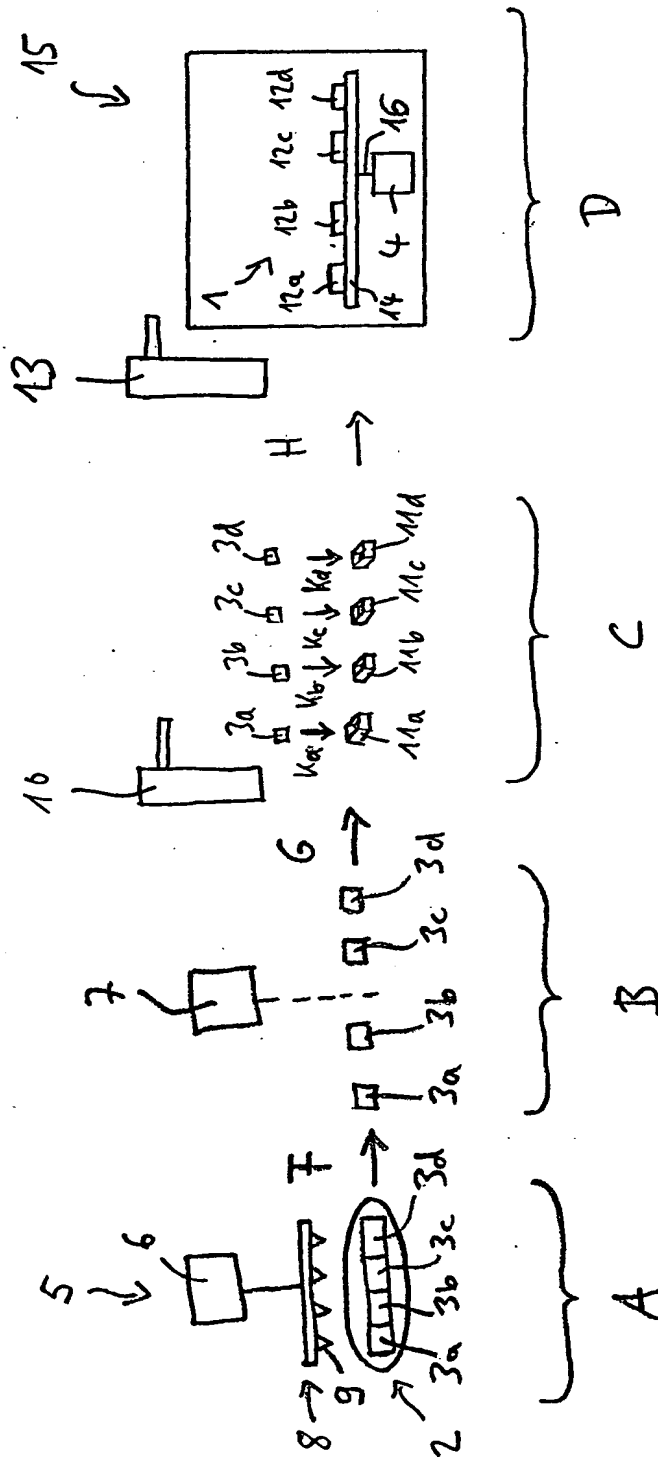 5
6
8
9
2
3a 3b 3c 3d
A
F
7
3a 3b 3c 3d
B
G
10
3a 3b 3c 3d
Ka Kb Kc Kd
11a 11b 11c 11d
C
H
13
15
1
12a 12b 12c 12d
14 4 16
D